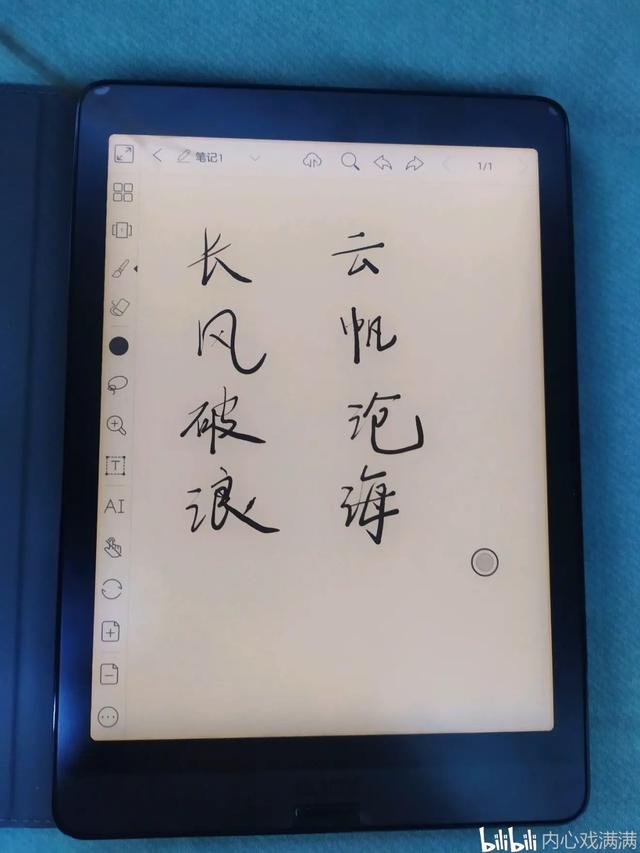 笔记1
1/1
T
AI
长风破浪
云帆沧海
bilibili 内心戏满满